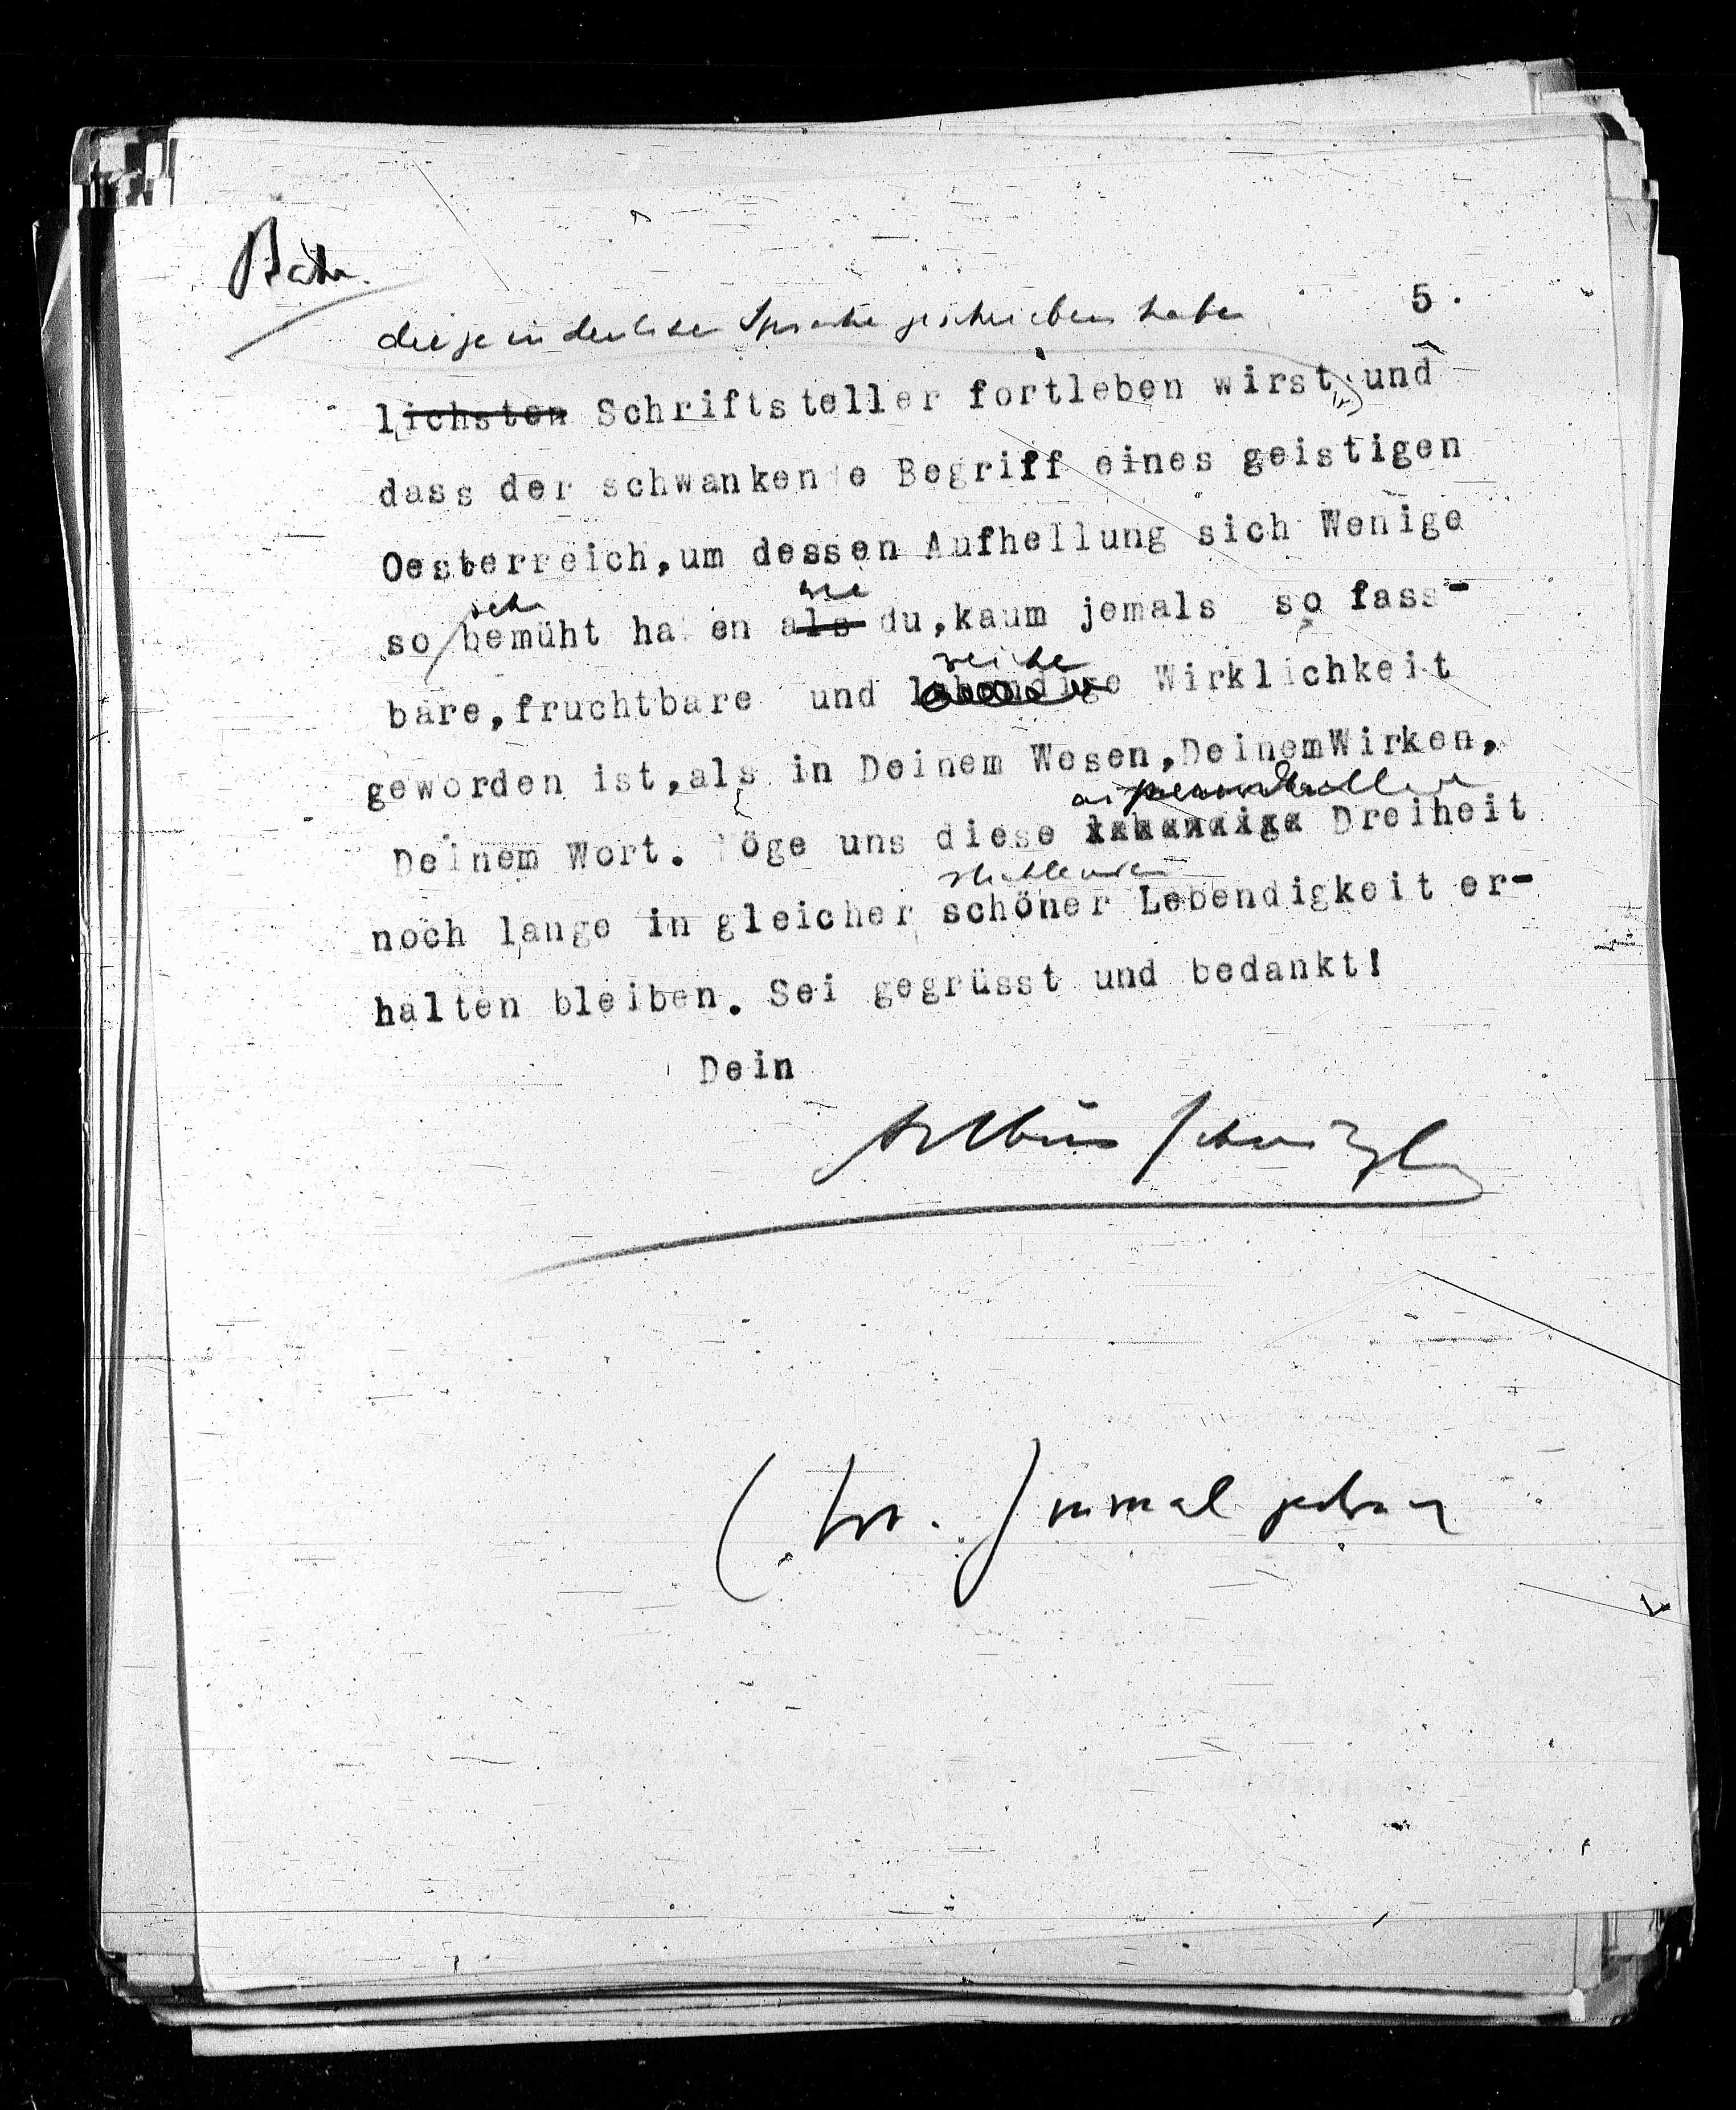 Bahr.
5.
die je in deutscher Sprache geschrieben haben
lichsten Schriftsteller fortleben wirst, und
dass der schwankende Begriff eines geistigen
Oesterreich,um dessen Aufhellung sich Wenige
sehr wie
so bemüht haben als du,kaum jemals so fass-
reiche
bare,fruchtbare und lebendige Wirklichkeit
geworden ist,als in Deinem Wesen,DeinemWirken,
Deinem Wort. Möge uns diese Dreiheit
strahlender
noch lange in gleicher schöner Lebendigkeit er-
halten bleiben. Sei gegrüsst und bedankt!
Dein
Arthur Schnitzler